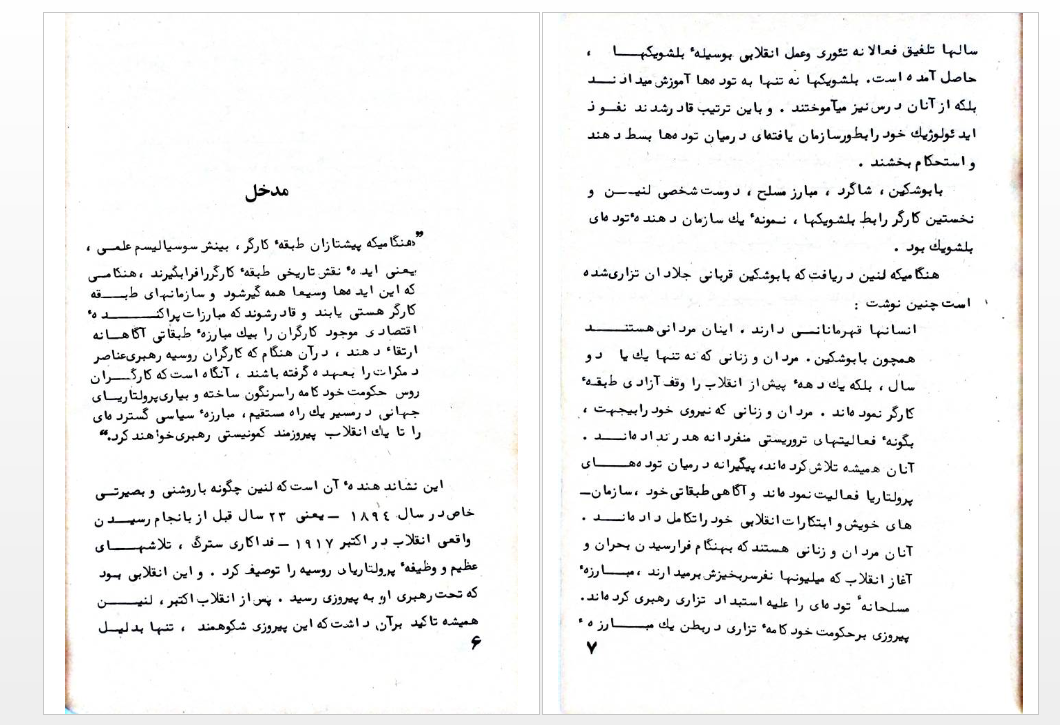 مدخل
"هنگامیکه پیشتازان طبقهٔ کارگر ، بینش سوسیالیسم علمی ،
یعنی ایدهٔ نقش تاریخی طبقهٔ کارگررافرابگیرند ، هنگامی
که این ایده‌ها وسیعا همه گیرشود و سازمانهای طبـــقه
کارگر هستی یابند و قادرشوند که مبارزات پراکنـــــدهٔ
اقتصادی موجود کارگران را بیک مبارزهٔ طبقاتی آگاهـانه
ارتقاء دهند ، درآن هنگام که کارگران روسیه رهبری‌عناصر
دمکرات را بعهده گرفته باشند ، آنگاه است که کارگـــران
روس حکومت خودکامه راسرنگون ساخته و بیاری‌پرولتاریـای
جهانی درمسیر یك راه مستقیم، مبارزهٔ سیاسی گسترده‌ای
را تا یك انقلاب پیروزمند کمونیستی رهبری‌خواهند کرد."
این نشاندهندهٔ آن است که لنین چگونه باروشنی و بصیرتـی
خاص‌در سال ۱۸۹٤ ــ یعنی ۲۳ سال قبل از بانجام رسیـدن
واقعی انقلاب در اکتبر ۱۹۱۷ ــ فداکاری سترگ ، تلاشهـــای
عظیم و وظیفهٔ پرولتاریای روسیه را توصیف کرد . و این انقلابی بـود
که تحت رهبری او به پیروزی رسید . پس از انقلاب اکتبر ، لنیـــن
همیشه تاکید برآن داشت که این پیروزی شکوهمند ، تنها بدلیـل
۶
سالها تلفیق فعالانه تئوری وعمل انقلابی بوسیلهٔ بلشویکهـــا ،
حاصل آمده است. بلشویکها نه تنها به توده‌ها آموزش میدادنـــد
بلکه از آنان درس نیز میآموختند . و باین ترتیب قادرشدند نفـوذ
ایدئولوژیك خود را بطورسازمان یافته‌ای درمیان توده‌ها بسط دهند
و استحکام بخشند .
بابوشکین ، شاگرد ، مبارز مسلح ، دوست شخصی لنیـــن و
نخستین کارگر رابط بلشویکها ، نمونهٔ یك سازمان دهندهٔ توده‌ای
بلشویك بود .
هنگامیکه لنین دریافت که بابوشکین قربانی جلادان تزاری‌شده
است چنین نوشت :
انسانها قهرمانانـــی دارند . اینان مردانی هستنــــد
همچون بابوشکین. مردان و زنانی که نه تنها یك یا دو
سال ، بلکه یك دههٔ پیش از انقلاب را وقف آزادی طبقـهٔ
کارگر نموده‌اند . مردان و زنانی که نیروی خود را بیجهت ،
بگونهٔ فعالیتهای تروریستی منفردانه هدر نداده‌انــــد .
آنان همیشه تلاش کرده‌اند، پیگیرانه درمیان توده‌هـــای
پرولتاریا فعالیت نموده‌اند و آگاهی طبقاتی خود ، سازمان‌ــ
های خویش و ابتکارات انقلابی خود راتکامل داده‌انــــد .
آنان مردان و زنانی هستند که بهنگام فرارسیدن بحران و
آغاز انقلاب که میلیونها نفرسربخیزش برمیدارند ، مبـــارزهٔ
مسلحانهٔ توده‌ای را علیه استبداد تزاری رهبری کرده‌اند.
پیروزی برحکومت خودکامهٔ تزاری دربطن یك مبـــــارزهٔ
۷